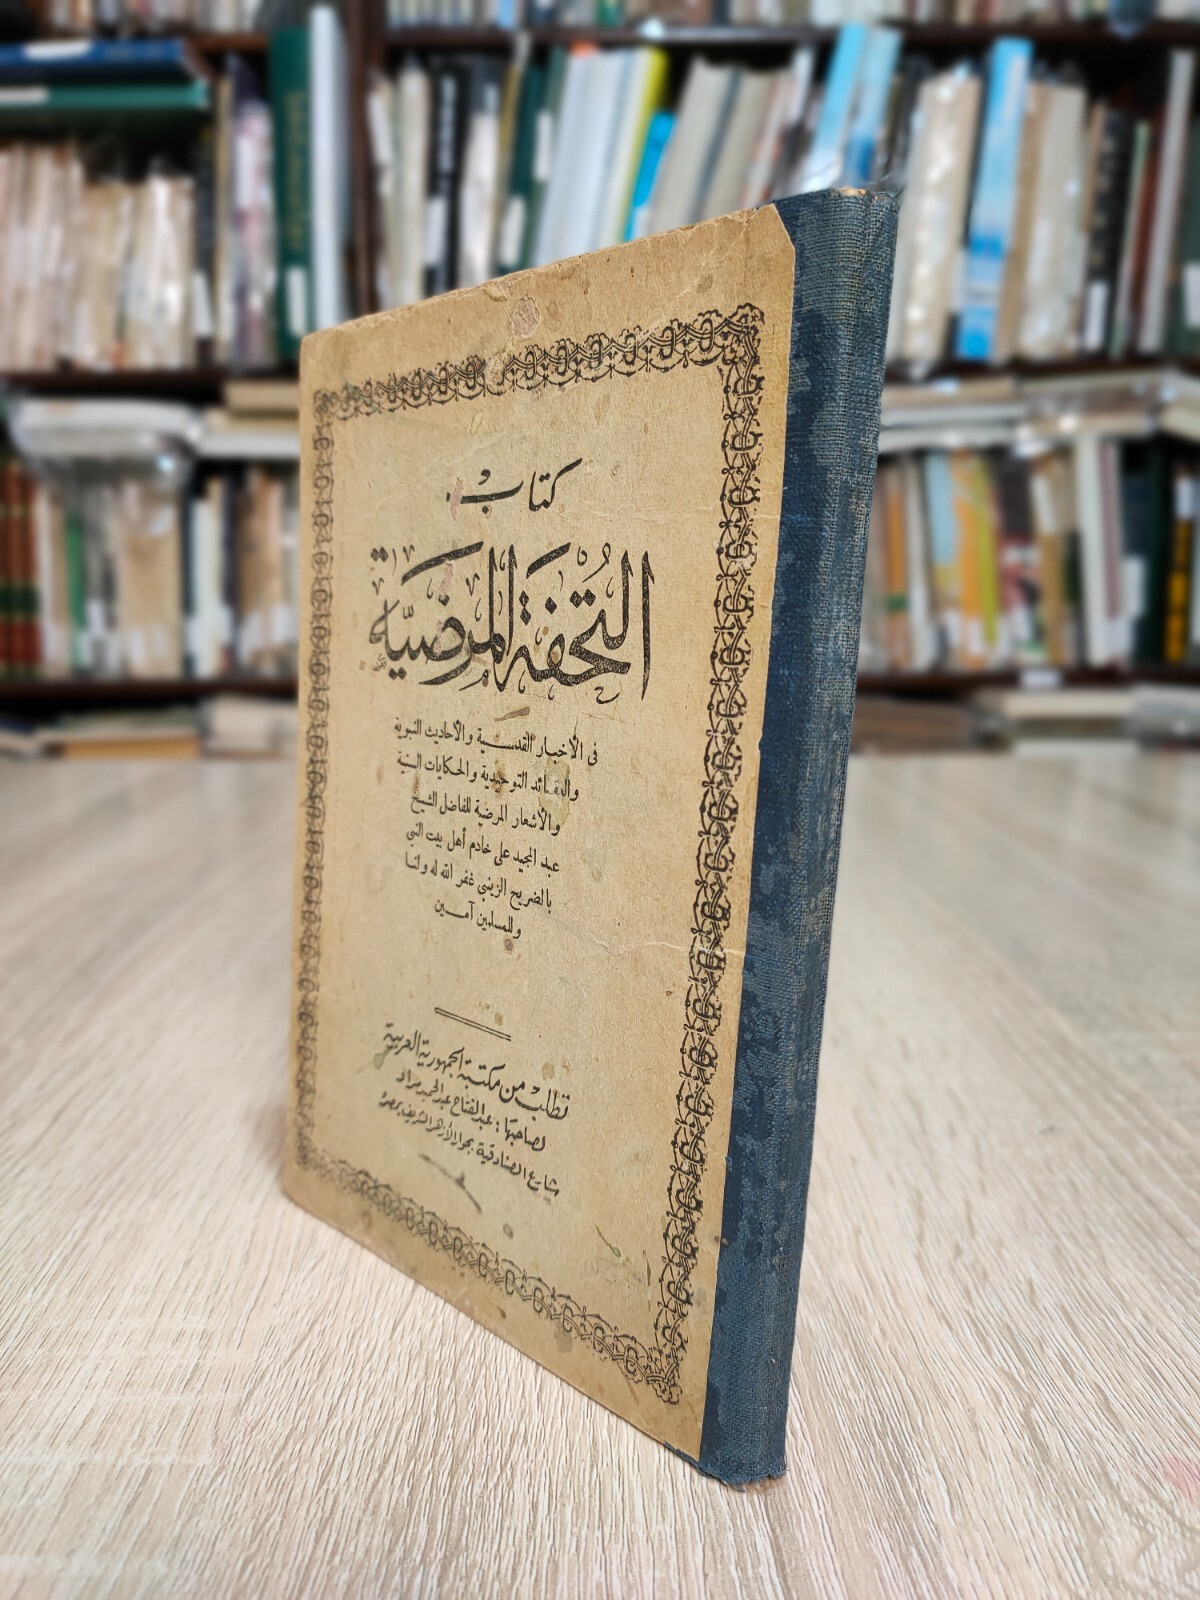 كتاب
التُّحفة المرضيّة
فى الأخبار القدسية والأحاديث النبوية
والعقائد التوحيدية والحكايات السنية
والأشعار المرضية للفاضل الشيخ
عبد المجيد على خادم أهل بيت النبي
بالضريح الزينبي غفر الله له ولنا
وللمسلمين آمين
تطلب من مكتبة الجمهورية العربية
لصاحبها : عبد الفتاح عبد الحميد مراد
بشارع الصنادقية بجوار الأزهر الشريف بمصر